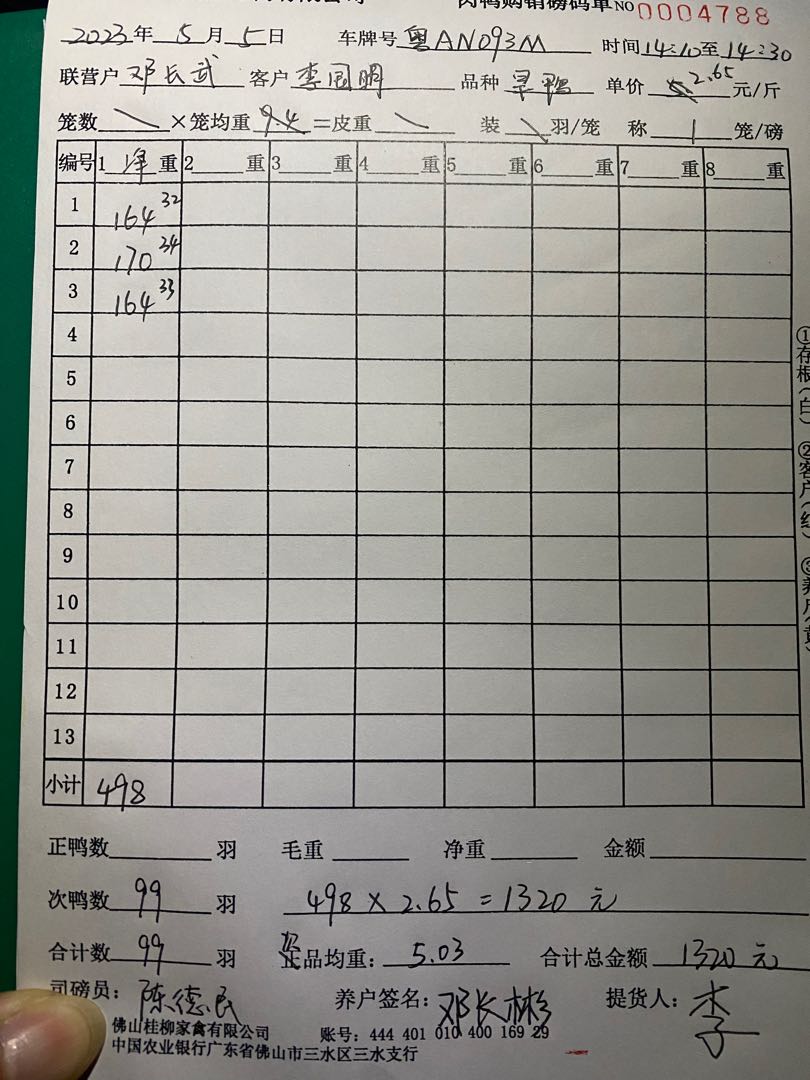 肉鸭购销磅码单NO 0004788
2023年 5 月 5 日 车牌号 粤AN093M 时间14:10至14:30
联营户 邓长武 客户 李国鹏 品种 单价 2.65 元/斤
笼数 \ ×笼均重 9.4 =皮重 \ 装 \ 羽/笼 称 1 笼/磅
编号 1 净 重 2 重 3 重 4 重 5 重 6 重 7 重 8 重
1 164 32
2 170 34
3 164 33
4
5
6
7
8
9
10
11
12
13
小计 498
正鸭数 羽 毛重 净重 金额
次鸭数 99 羽 498 × 2.65 = 1320 元
合计数 99 羽 品均重: 5.03 合计总金额 1320 元
司磅员: 陈德民 养户签名: 邓长彬 提货人: 李
佛山桂柳家禽有限公司 账号: 444 401 010 400 169 29
中国农业银行广东省佛山市三水区三水支行
①存根(白) ②客户(红)